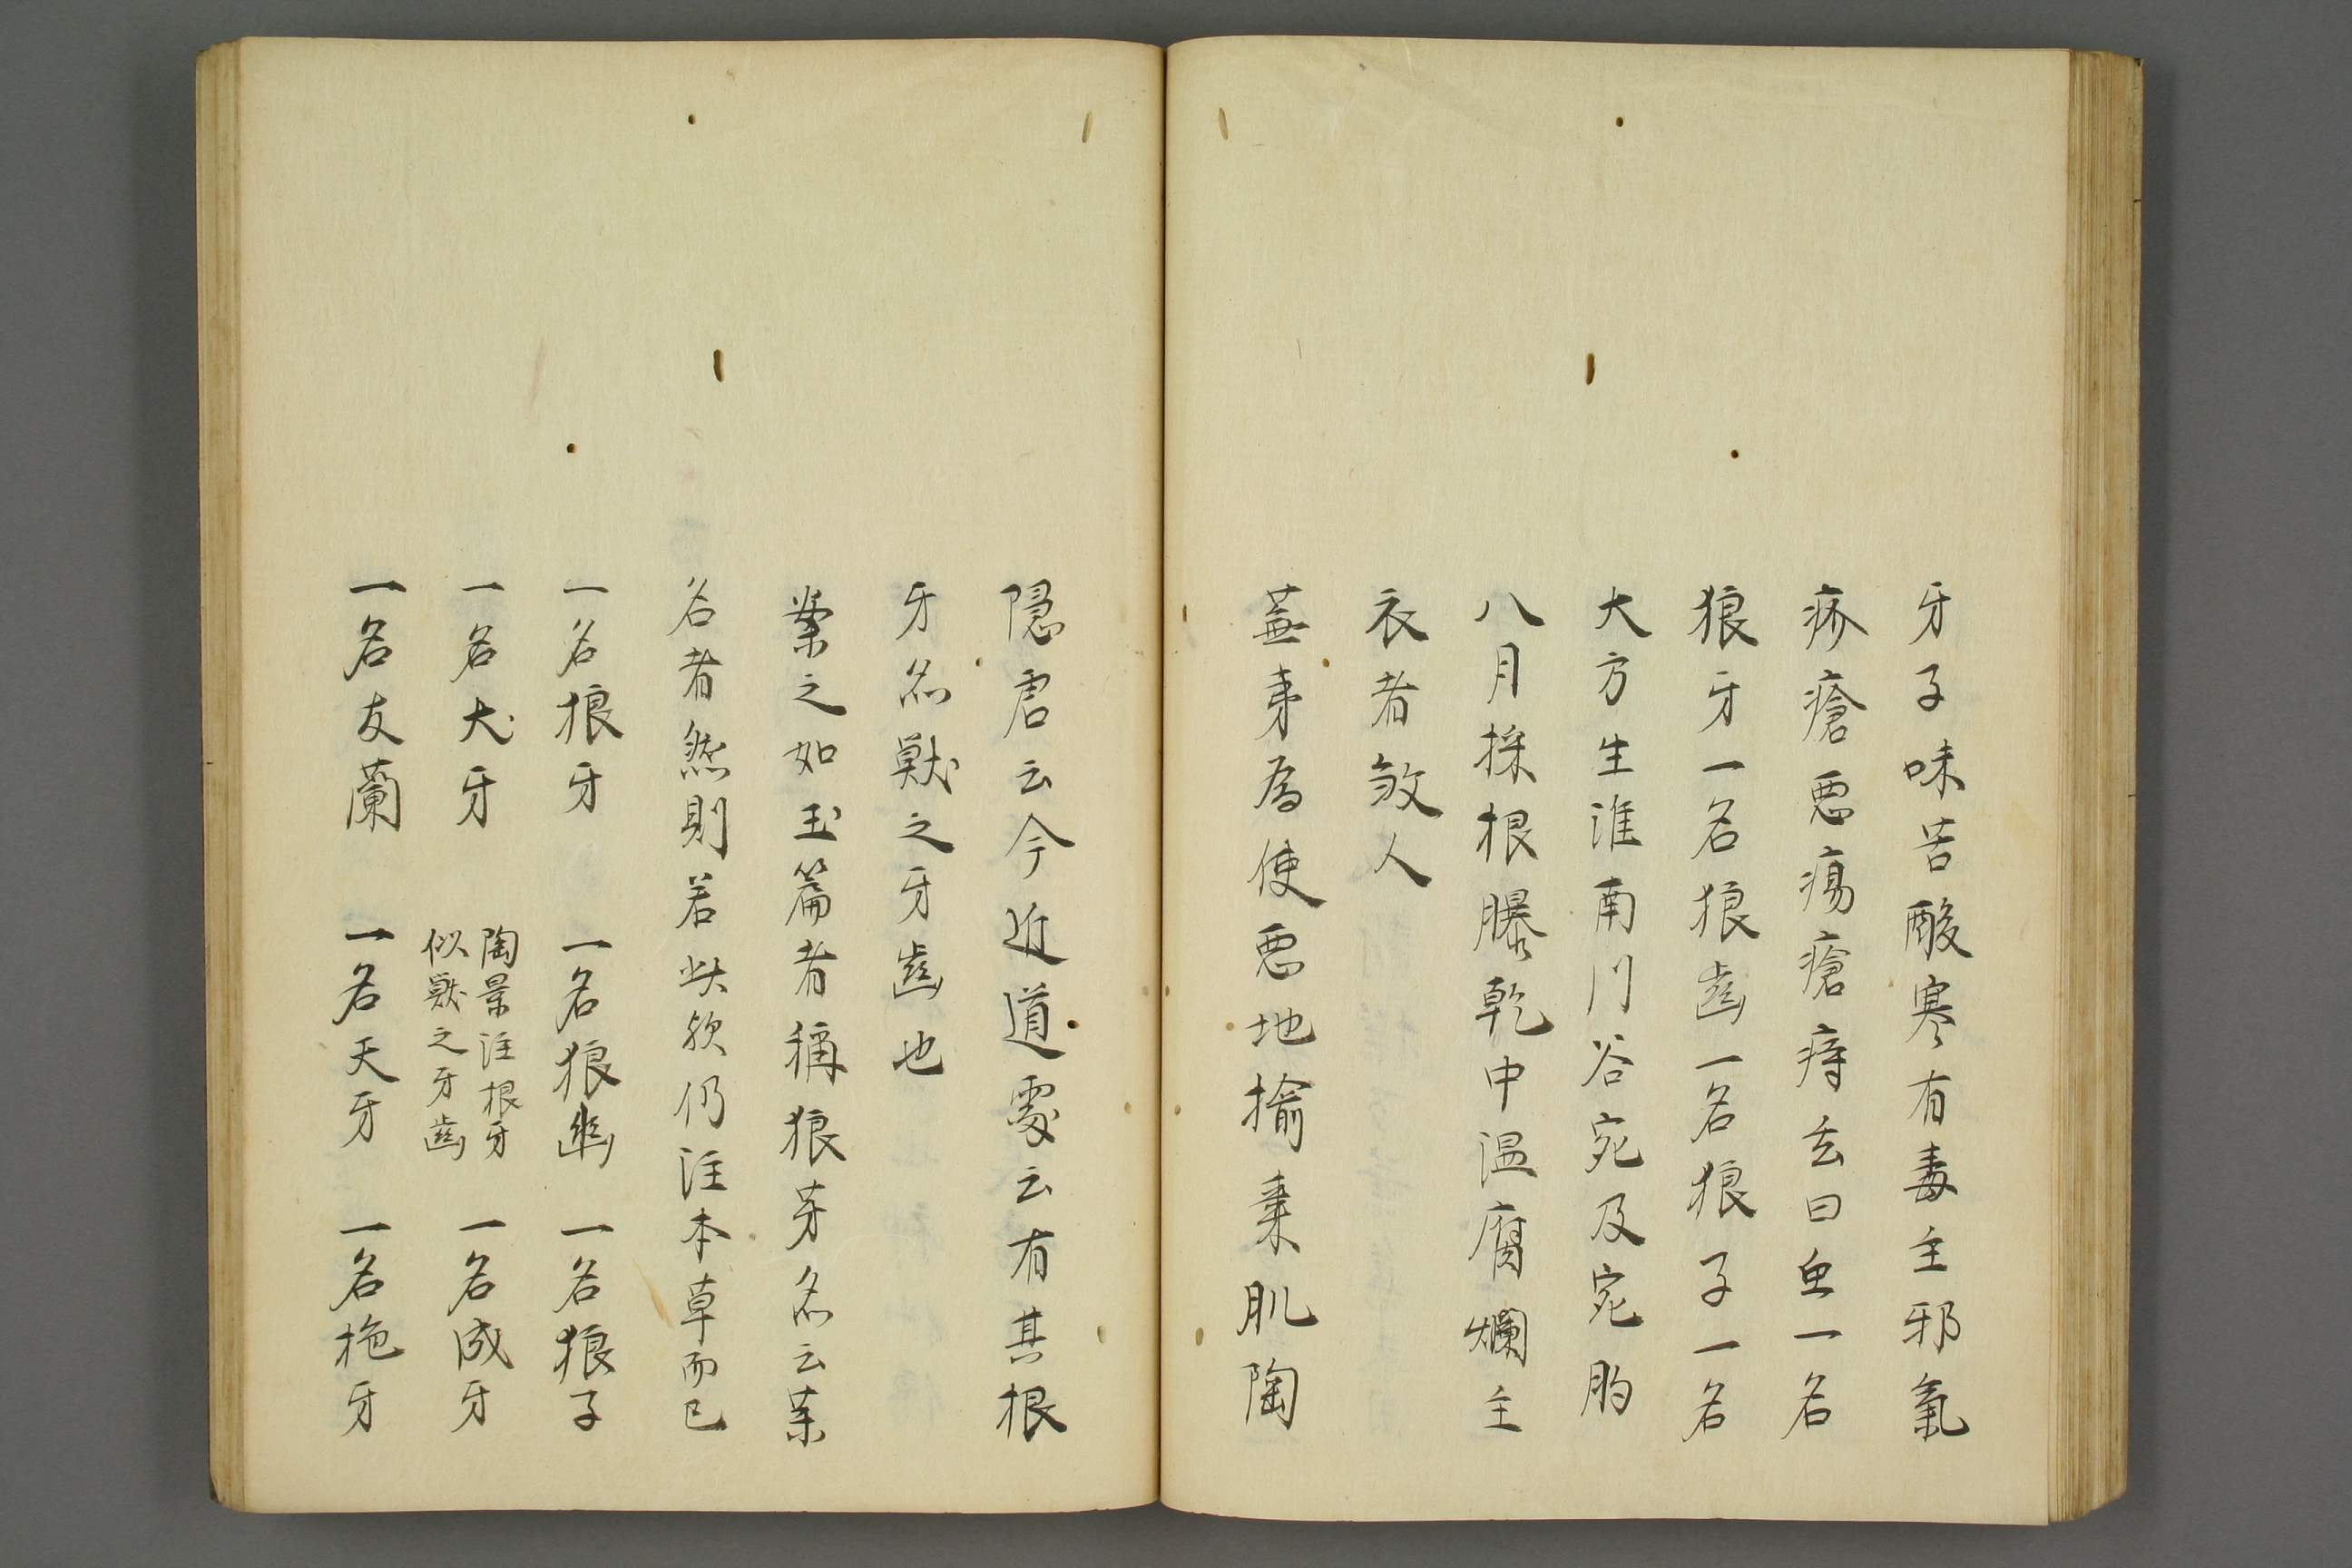 牙子味苦酸寒有毒主邪氣
疥瘡悪瘍瘡痔去曰虫一名
狼牙一名狼齒一名狼子一名
大方生淮南川谷宛及寃朐
八月採根曝乾中温腐爛主
衣者煞人
蕪荑為使悪地揄棗肌陶
隱君云今近道處云有其根
牙似獣之牙齒也
案之如玉篇者稱狼芽名云葉
名者然則若欤仍注本草而已
一名狼牙 一名狼齒 一名狼子
一名犬牙 陶景注根牙
似獣之牙齒 一名成牙
一名支蘭 一名天牙 一名牙